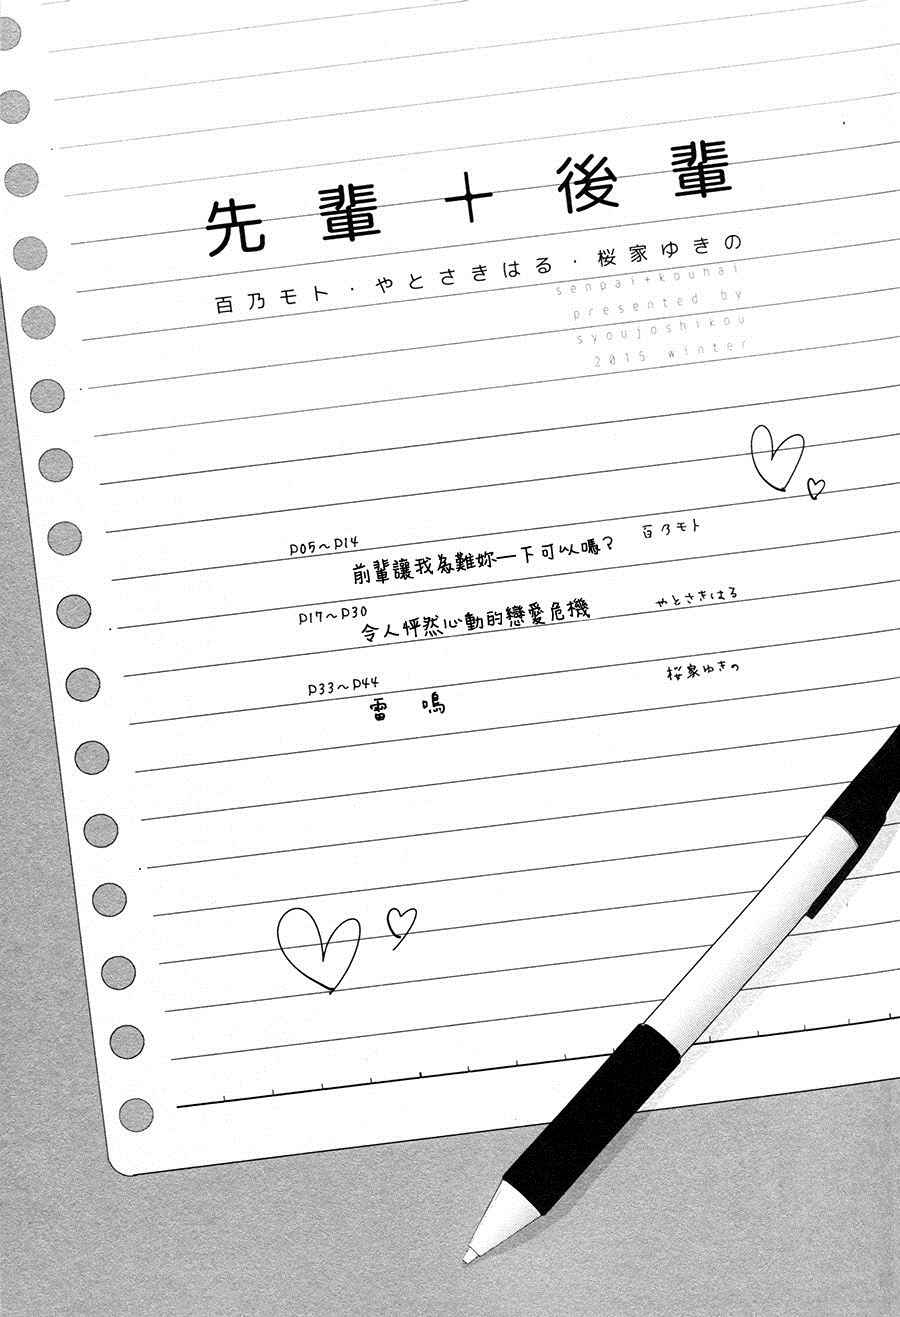 先輩+後輩
百乃モト・やとさきはる・桜家ゆきの
senpai+kouhai
presented by
syoujoshikou
2015 winter
P05~P14
前輩讓我為難妳一下可以嗎? 百乃モト
P17~P30
令人怦然心動的戀愛危機 やとさきはる
P33~P44
雷鳴 桜家ゆきの